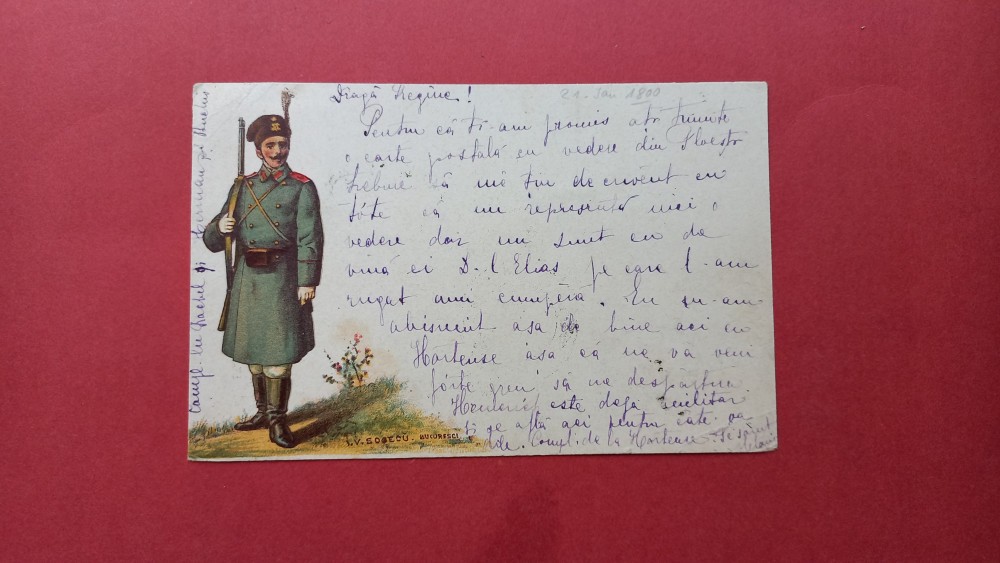 Dragă Regine!
21. Jan 1800
Pentru că ți-am promis a-ți trimite
o carte postală cu vedere din Ploesti
trebuie să mĕ țin de cuvent cu
tóte că nu represintă nici o
vedere dar nu sunt eu de
vină ci D-l Elias pe care l-am
rugat cumpĕra. Eu
asa de bine aci cu
Hortense asa că ne va veni
fórte greu să ne despărțim
este deja militar
si se află aci pentru cate-va
dile. Compl. de la Hortense
Compl. lui Rachel și Herman și
I.V. SOCECŬ. BUCURESCI